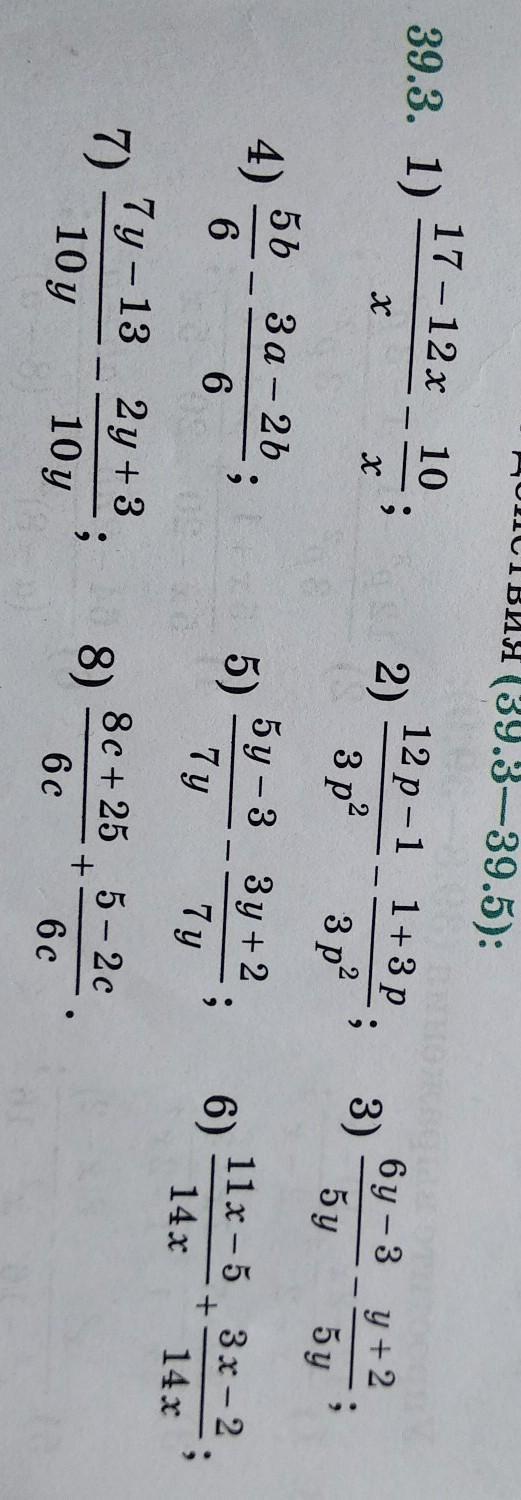 (39.3—39.5):
39.3. 1) (17 − 12x)/x − 10/x; 2) (12p − 1)/(3p²) − (1 + 3p)/(3p²); 3) (6y − 3)/(5y) − (y + 2)/(5y);
4) 5b/6 − (3a − 2b)/6; 5) (5y − 3)/(7y) − (3y + 2)/(7y); 6) (11x − 5)/(14x) + (3x − 2)/(14x);
7) (7y − 13)/(10y) − (2y + 3)/(10y); 8) (8c + 25)/(6c) + (5 − 2c)/(6c).